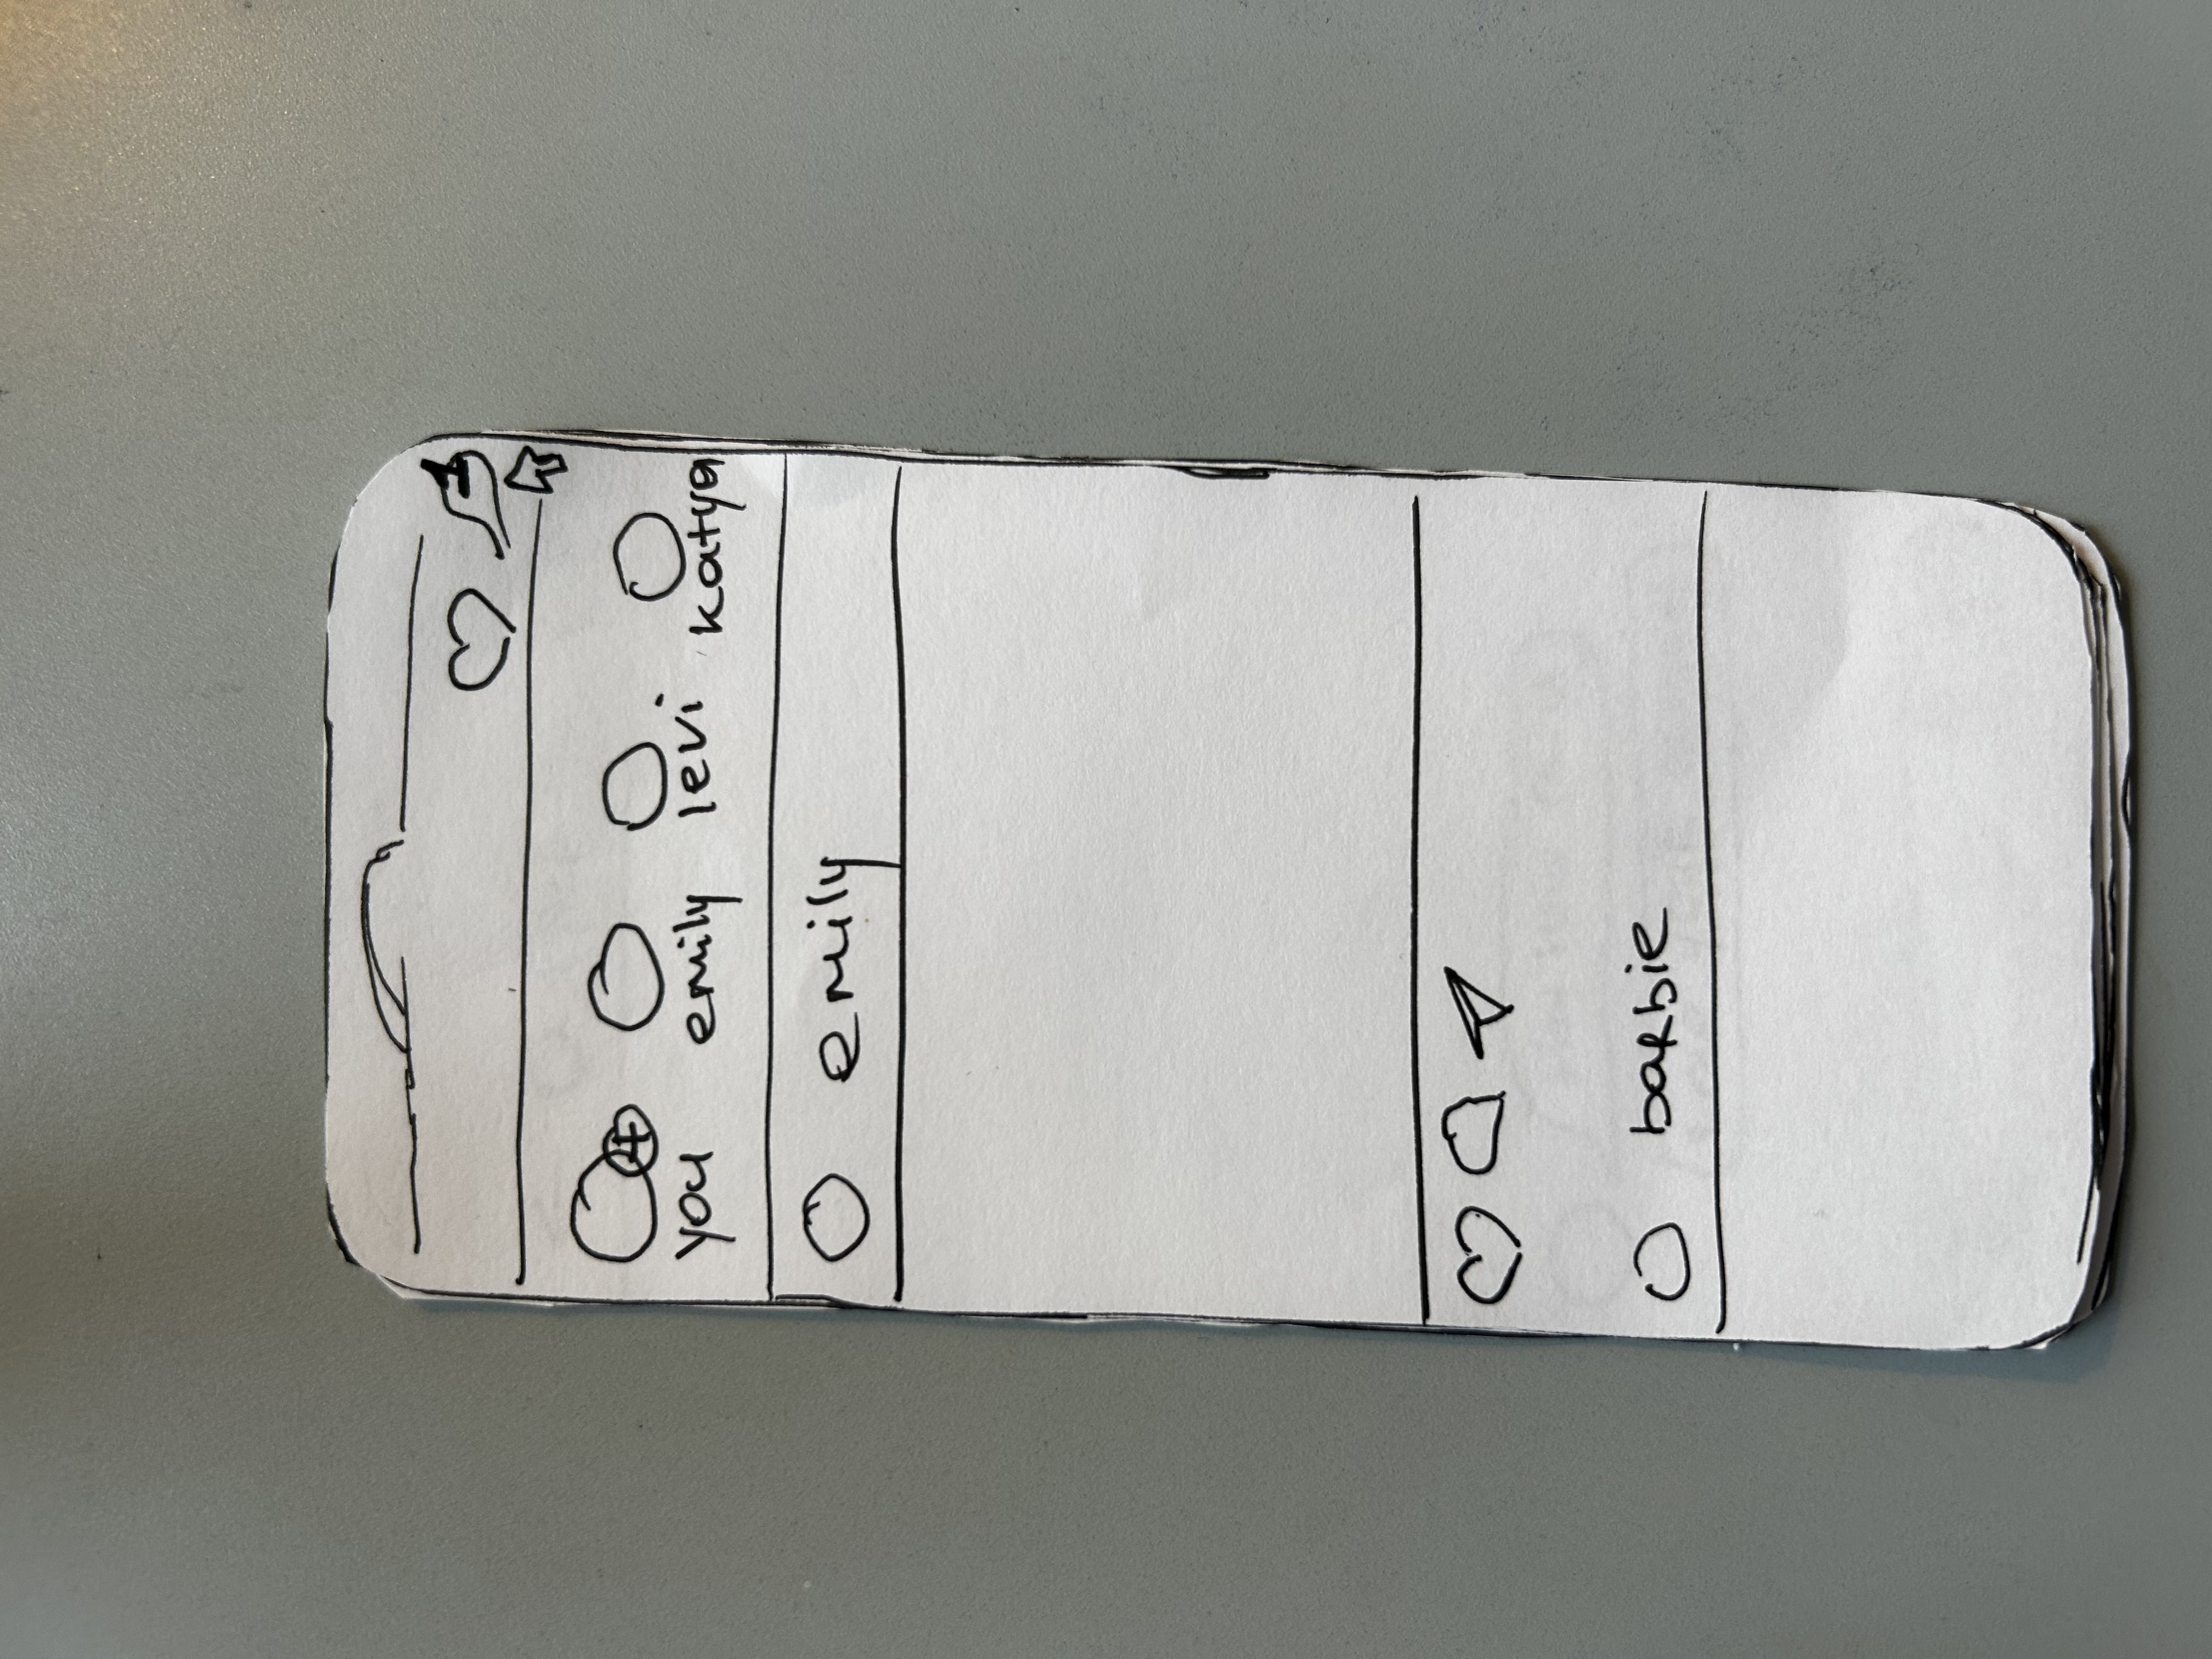 1
you emily levi katya
emily
barbie